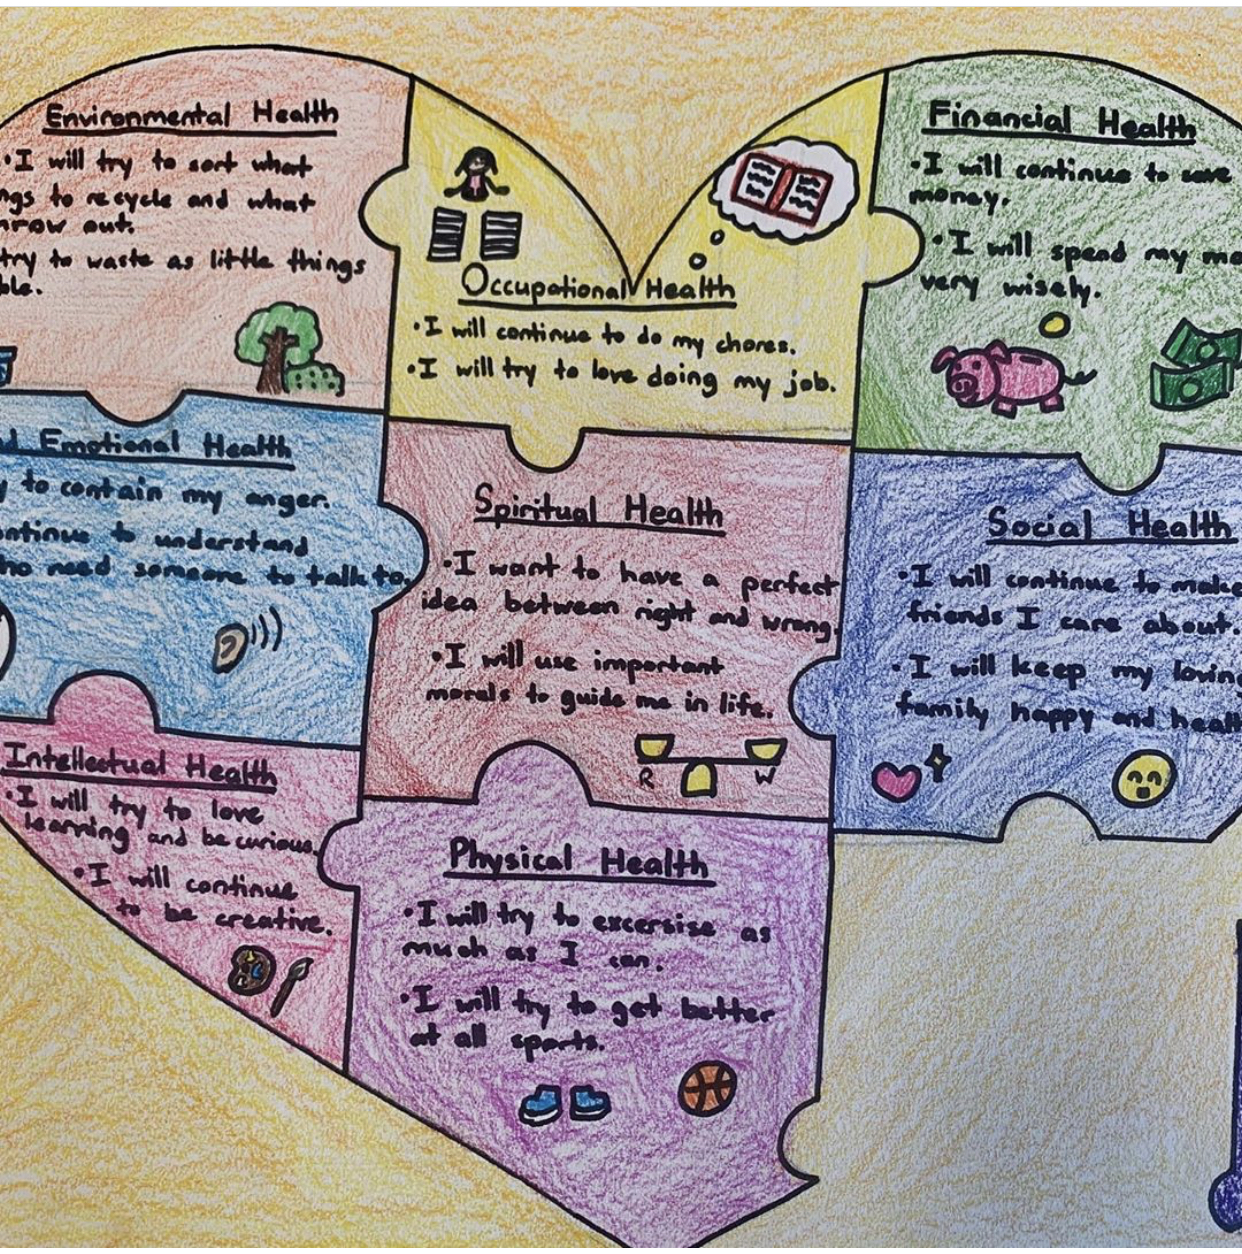 Environmental Health
•I will try to sort what
ngs to recycle and what
hrow out.
try to waste as little things
ble.
Occupational Health
•I will continue to do my chores.
•I will try to love doing my job.
Financial Health
•I will continue to save
money.
•I will spend my mo
very wisely.
d Emotional Health
y to contain my anger.
ontinue to understand
ho need someone to talk to.
Spiritual Health
•I want to have a perfect
idea between right and wrong.
•I will use important
morals to guide me in life.
R W
Social Health
•I will continue to make
friends I care about.
•I will keep my loving
family happy and healt
Intellectual Health
•I will try to love
learning and be curious.
•I will continue
to be creative.
Physical Health
•I will try to excersise as
much as I can.
•I will try to get better
at all sports.